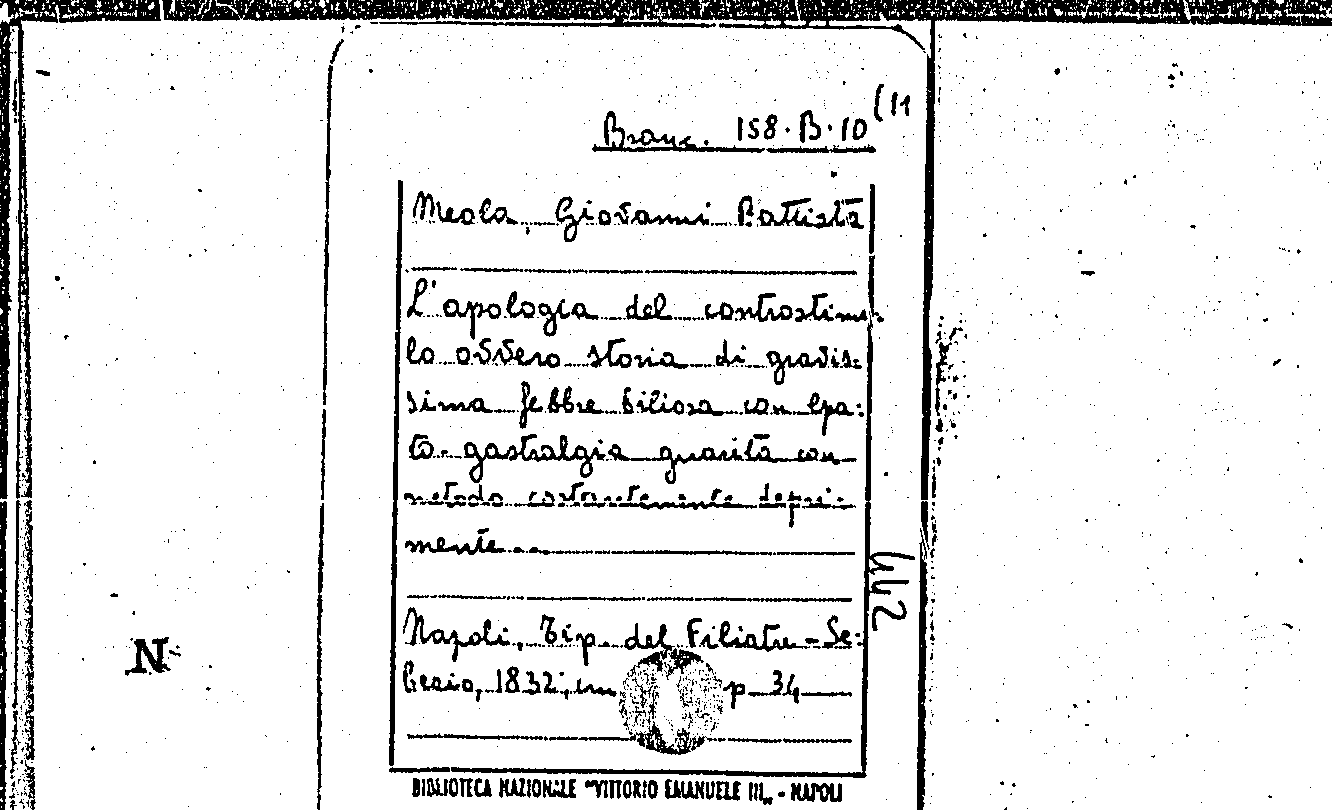 Branc. 158.B.10 (11
Meola, Giovanni Battista
L'apologia del controstimo-
lo ovvero storia di gravis=
sima febbre biliosa con epa=
to-gastralgia guarita con
metodo costantemente depri-
mente...
442
Napoli, Tip. del Filiatre-Se=
bezio, 1832, in p. 34
N
BIBLIOTECA NAZIONALE "VITTORIO EMANUELE III" - NAPOLI